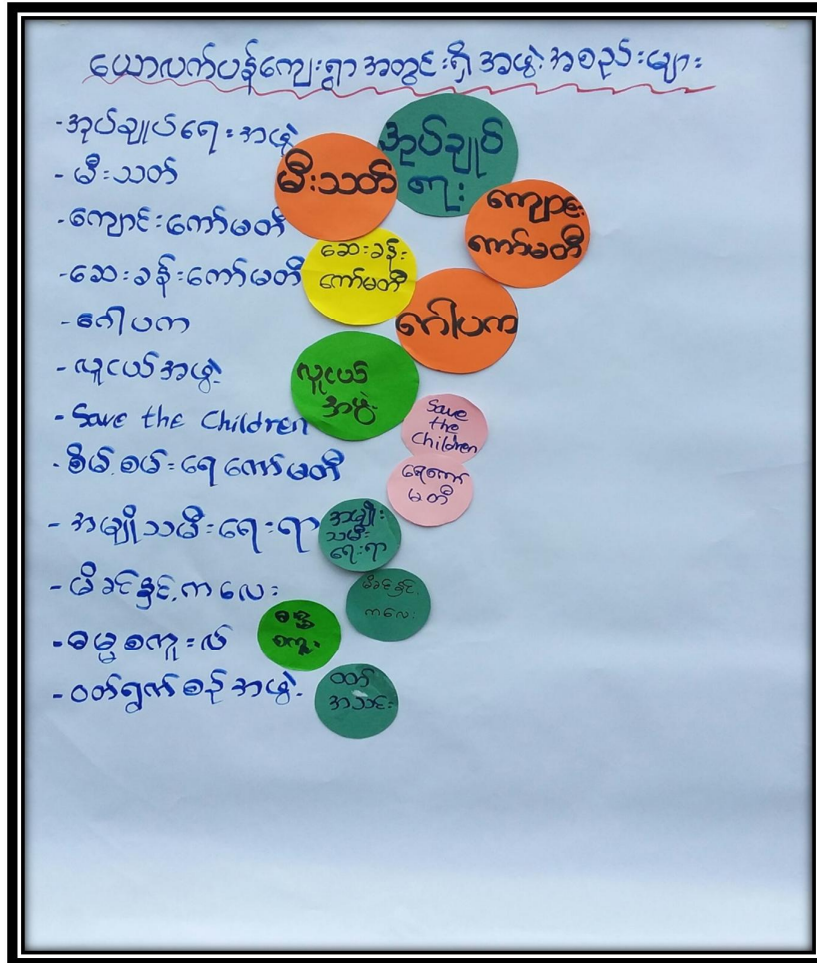 ယောလက်ပန်ကျေးရွာအတွင်းရှိ အဖွဲ့အစည်းများ
-အုပ်ချုပ်ရေးအဖွဲ့
- မီးသတ်
-ကျောင်းကော်မတီ
-ဆေးခန်းကော်မတီ
-ဂေါပက
-လူငယ်အဖွဲ့
-Save the Children
-စိမ့်စမ်းရေကော်မတီ
-အမျိုသမီးရေးရာ
-မိခင်နှင့်ကလေး
-ဓမ္မစကူးလ်
-ဝတ်ရွက်စဉ်အဖွဲ့
အုပ်ချုပ်
ရေး
မီးသတ်
ကျောင်း
ကော်မတီ
ဆေးခန်း
ကော်မတီ
ဂေါပက
လူငယ်
အဖွဲ့
Save
the
Children
ရေကော်
မတီ
အမျိုး
သမီး
ရေးရာ
မိခင်နှင့်
ကလေး
ဓမ္မ
စကူး
ဝတ်
အသင်း